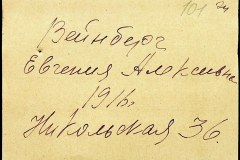 Вейнберг
Евгения Алексивна
1916.
Никольская 36.